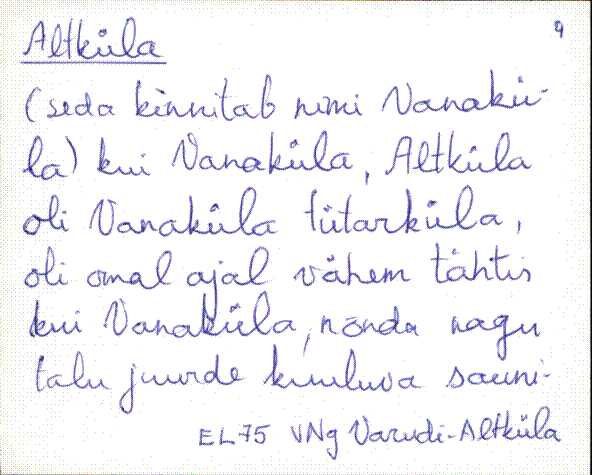 9
Altküla
(seda kinnitab nimi Vanakü-
la) kui Vanaküla, Altküla
oli Vanaküla tütarküla,
oli omal ajal vähem tähtis
kui Vanaküla, nõnda nagu
talu juurde kuuluva sauni-
EL75 VNg Varudi-Altküla